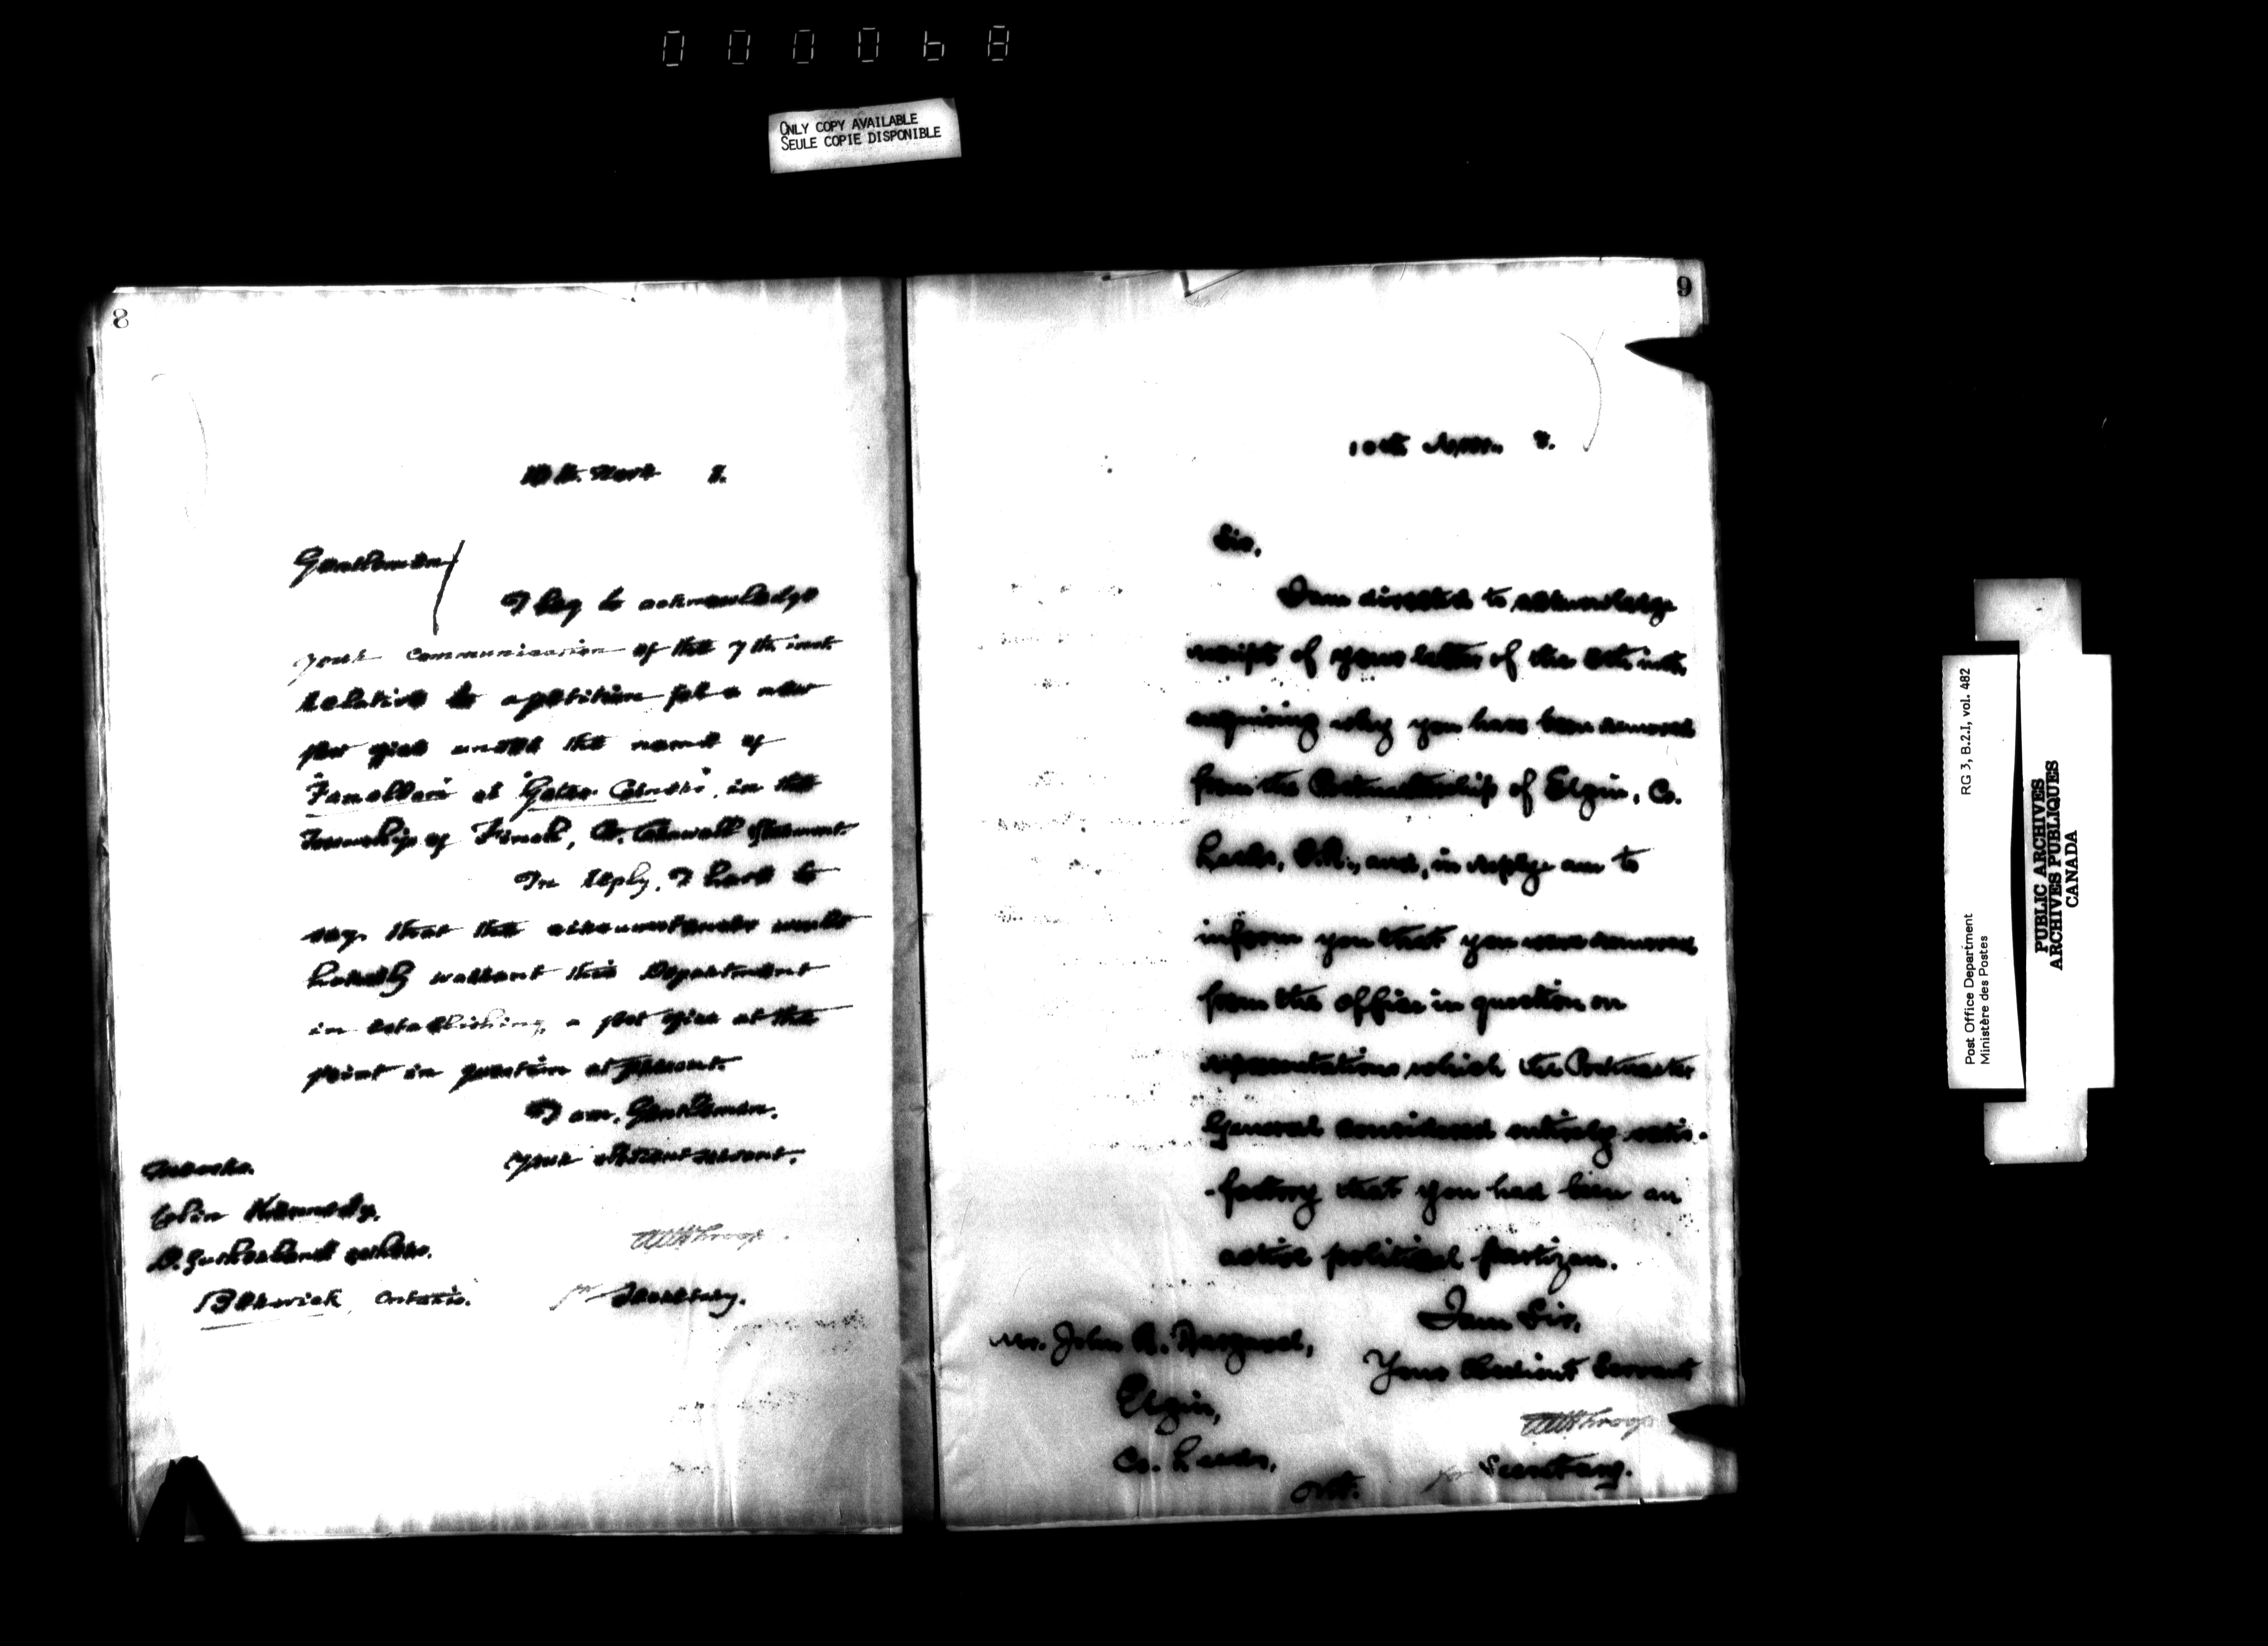 000068
ONLY COPY AVAILABLE
SEULE COPIE DISPONIBLE
8
10th. Novr. 8.
Gentlemen
I beg to acknowledge
your communication of the 7th inst.
relative to a petition for a new
post office under the name of
at in the
Township of Finch, Co. Cornwall & Stormont.
In reply, I have to
say that the circumstances would
hardly warrant this Department
in establishing a post office at the
point in question at present.
I am, Gentlemen,
Your obedient servant,
Messrs.
Colin Kennedy,
D. Sutherland & others,
Berwick, Ontario.
for Secretary.
9
10th Novr. 8.
Sir,
I am directed to acknowledge
receipt of your letter of the 8th inst.
enquiring why you have been removed
from the Postmastership of Elgin, Co.
Leeds, S.R., and, in reply am to
inform you that you were removed
from the office in question on
representations which the Postmaster
General considered entirely satis-
-factory that you had been an
active political partizan.
I am Sir,
Your obedient Servant
Mr. John R.
Elgin,
Co. Leeds,
Ont.
for Secretary.
RG 3, B.2.I, vol. 482
Post Office Department
Ministère des Postes
PUBLIC ARCHIVES
ARCHIVES PUBLIQUES
CANADA